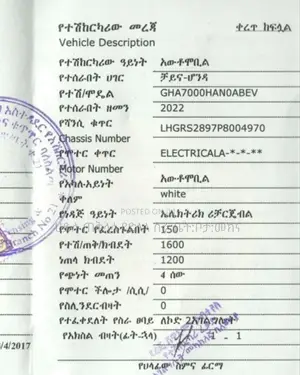 የተሽከርካሪው መረጃ ቀረጥ ከፍሏል
Vehicle Description
የተሽከርካሪው ዓይነት አውቶሞቢል
የተሰራበት ሀገር ቻይና-ሆንዳ
የተሽ/ሞዴል GHA7000HAN0ABEV
የተሰራበት ዘመን 2022
የሻንሲ ቁጥር LHGRS2897P8004970
Chassis Number
የሞተር ቁጥር ELECTRICALA-*-*-**
Motor Number
የአካሉ-አይነት አውቶሞቢል
ቀለም white
የነዳጅ ዓይነት ኤሌክትሪክ ሪቻርጀብል
የሞተር የፈረስጉልበት 150
የተሽ/ጠቅ/ክብደት 1600
ነጠላ ክብደት 1200
የጭነት መጠን 4 ሰው
የሞተር ችሎታ /ሲሲ/ 0
የሲሊንደርብዛት 0
የተፈቀደለት የስራ ፀባይ ለኮድ
የአክስል ብዛት(ፊት-ኋላ) 1 - 1
/4/2017
የሀላፊው ስምና ፊርማ